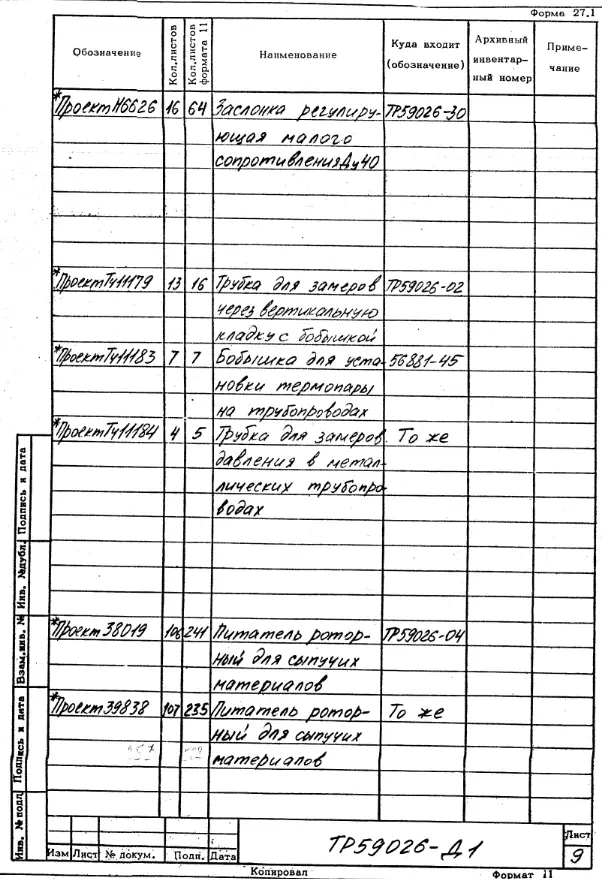 Форма 27.1
Обозначение Кол.листов Кол.листов формата 11 Наименование Куда входит (обозначение) Архивный инвентарный номер Примечание
*Проект Н6626 16 64 Заслонка регулиру- ТР59026-30
ющая малого
сопротивления Ду40
*Проект Тч11179 13 16 Трубка для замеров ТР59026-02
через вертикальную
кладку с бобышкой
*Проект Тч11183 7 7 Бобышка для уста- 56881-45
новки термопары
на трубопроводах
*Проект Тч11184 4 5 Трубка для замеров То же
давления в метал-
лических трубопро-
водах
*Проект 38019 106 241 Питатель ротор- ТР59026-04
ный для сыпучих
материалов
*Проект 39838 107 235 Питатель ротор- То же
ный для сыпучих
материалов
Инв. № подл. Подпись и дата Взам.инв. № Инв. №дубл. Подпись и дата
ТР59026-Д1
Лист
9
Изм Лист № докум. Подп. Дата
Копировал Формат 11